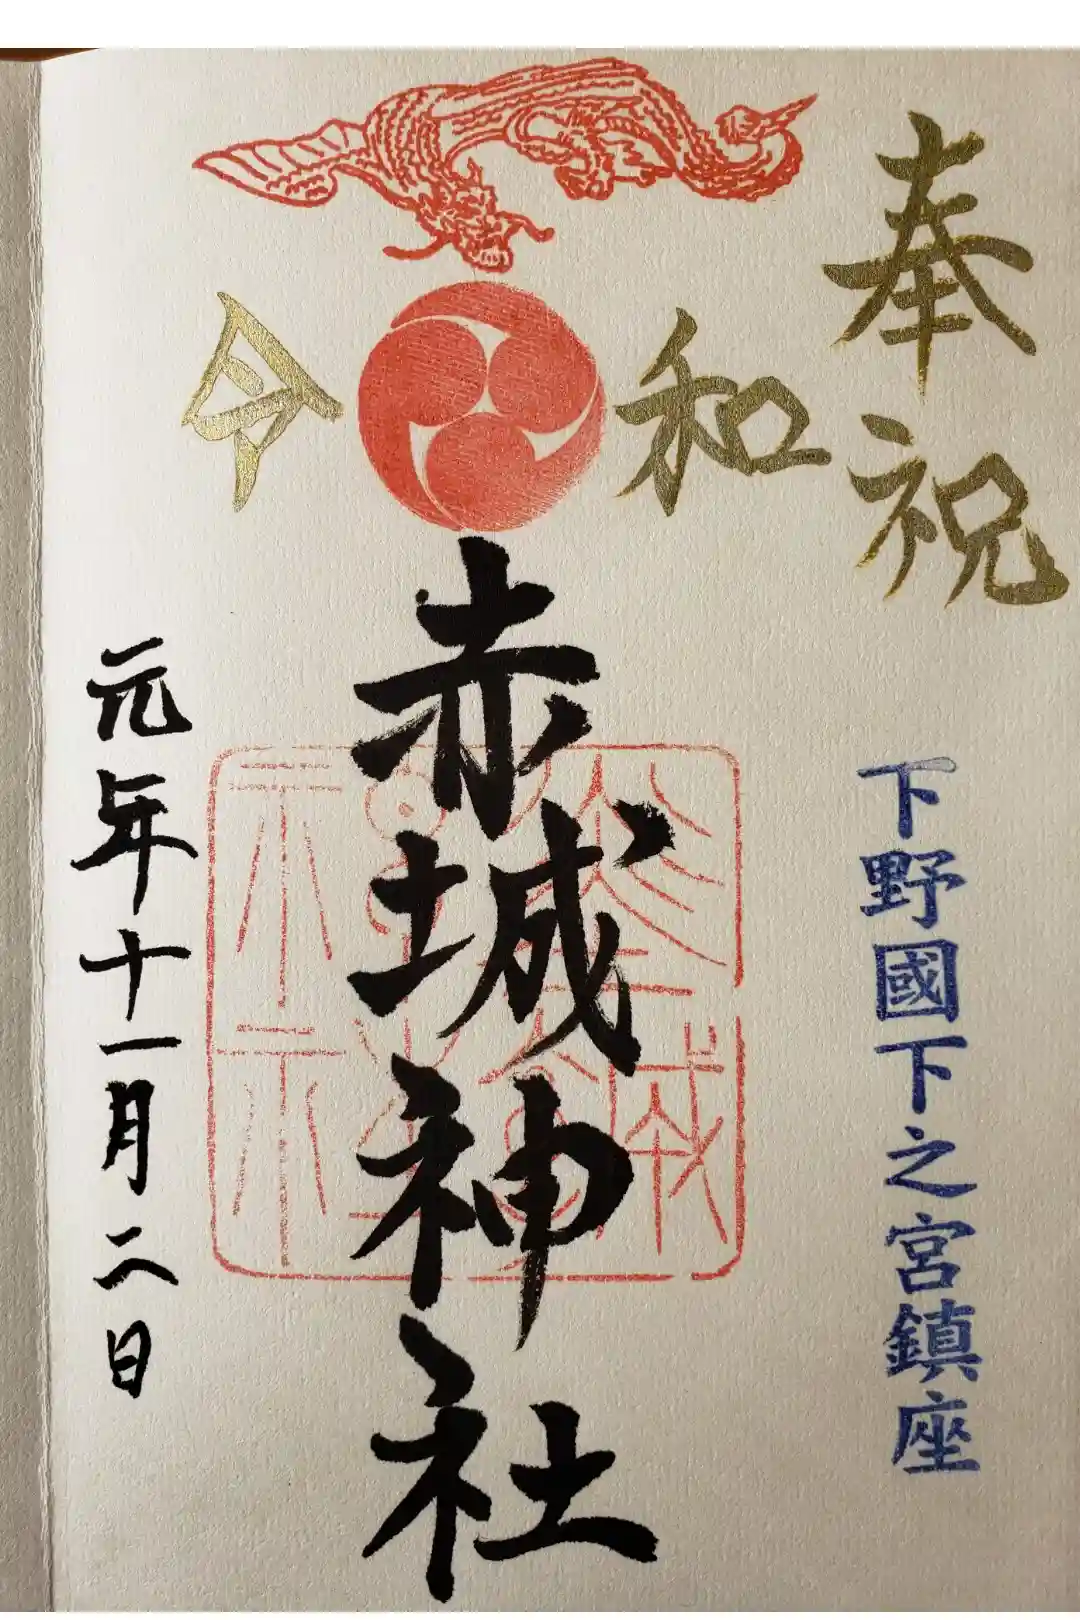 奉祝
下野國下之宮鎮座
令和
赤城神社
元年十一月二日